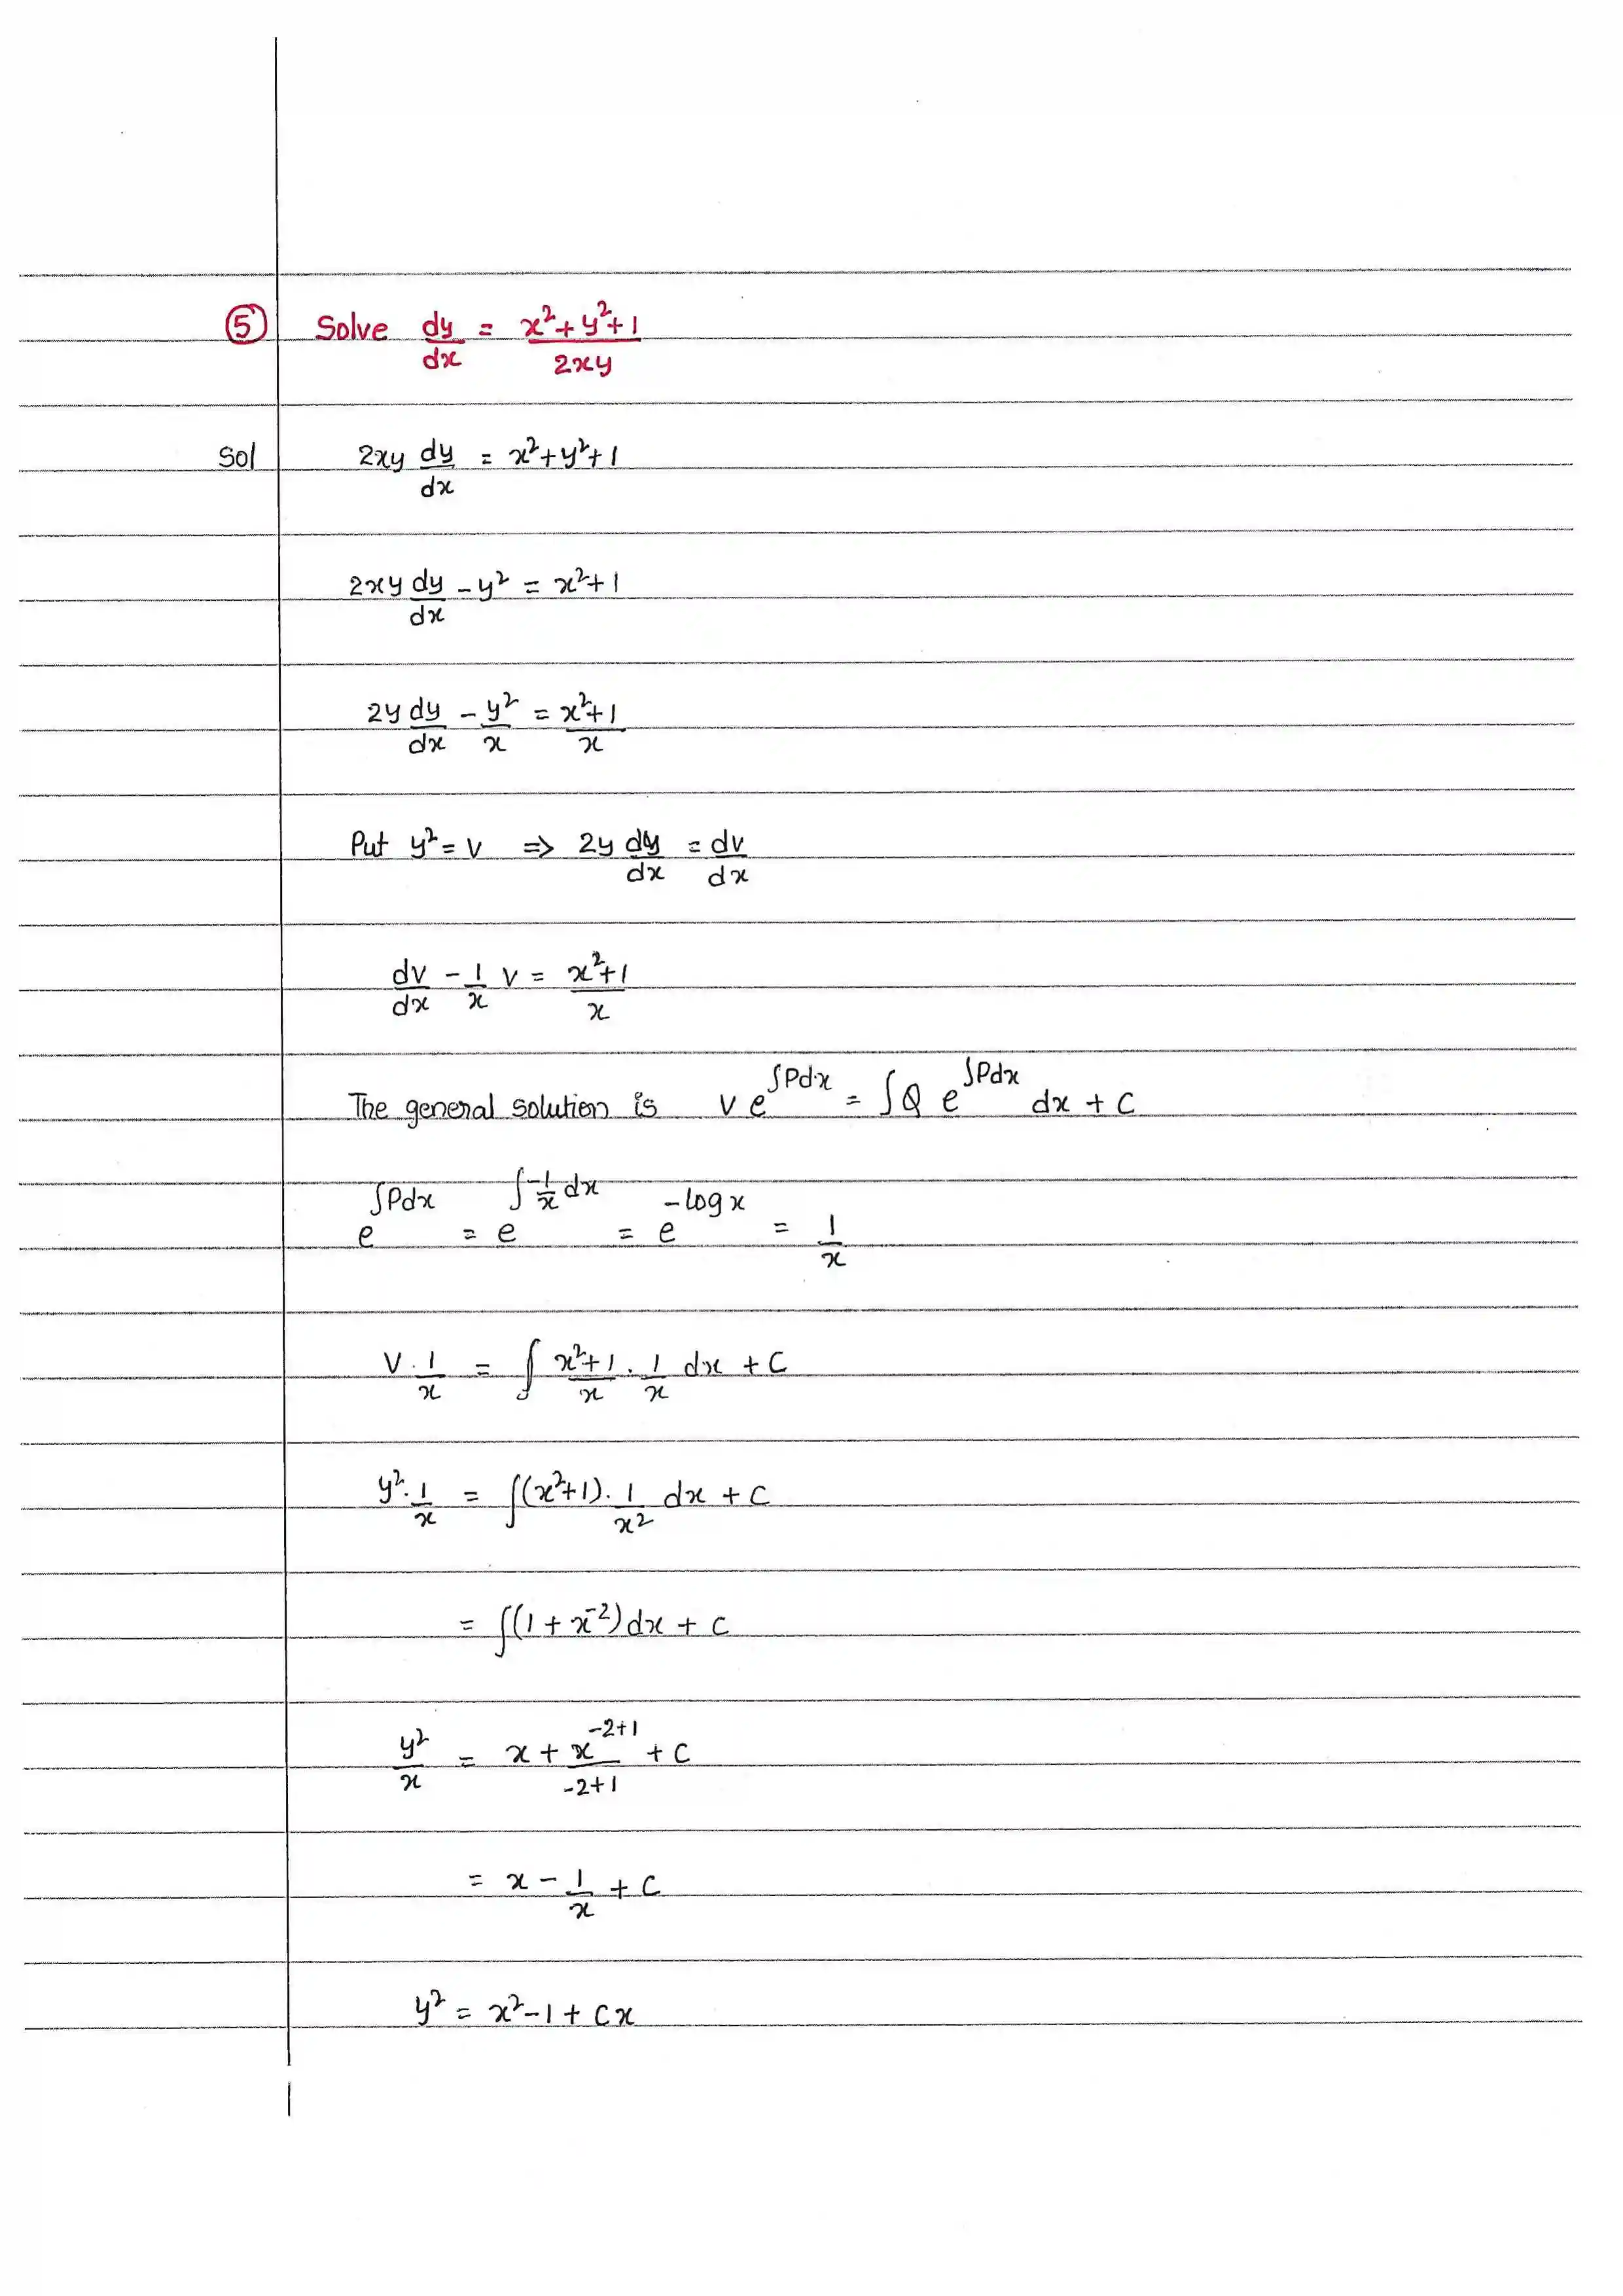 ⑤ Solve dy/dx = (x²+y²+1)/(2xy)
Sol 2xy dy/dx = x²+y²+1
2xy dy/dx - y² = x²+1
2y dy/dx - y²/x = (x²+1)/x
Put y² = v ⇒ 2y dy/dx = dv/dx
dv/dx - 1/x v = (x²+1)/x
The general solution is v e^(∫Pdx) = ∫Q e^(∫Pdx) dx + c
e^(∫Pdx) = e^(∫-1/x dx) = e^(-log x) = 1/x
v · 1/x = ∫ (x²+1)/x · 1/x dx + c
y² · 1/x = ∫(x²+1) · 1/x² dx + c
= ∫(1 + x⁻²)dx + c
y²/x = x + x^(-2+1)/(-2+1) + c
= x - 1/x + c
y² = x²-1 + cx